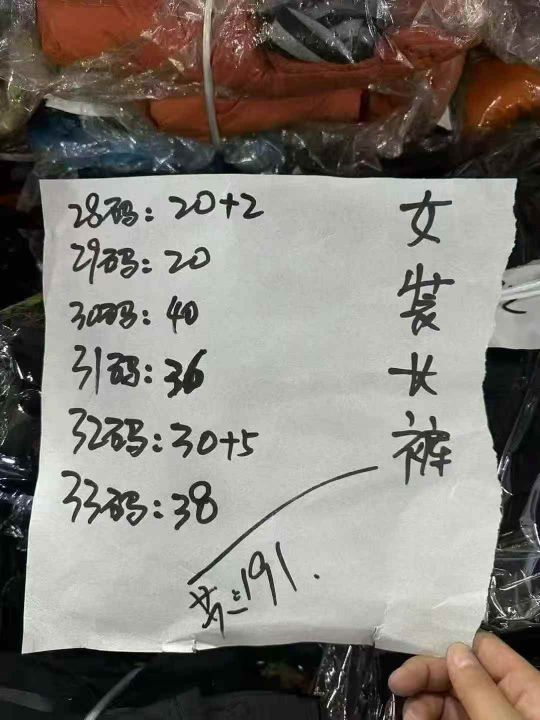 28码：20+2
29码：20
30码：40
31码：36
32码：30+5
33码：38
女装长裤
共=191.